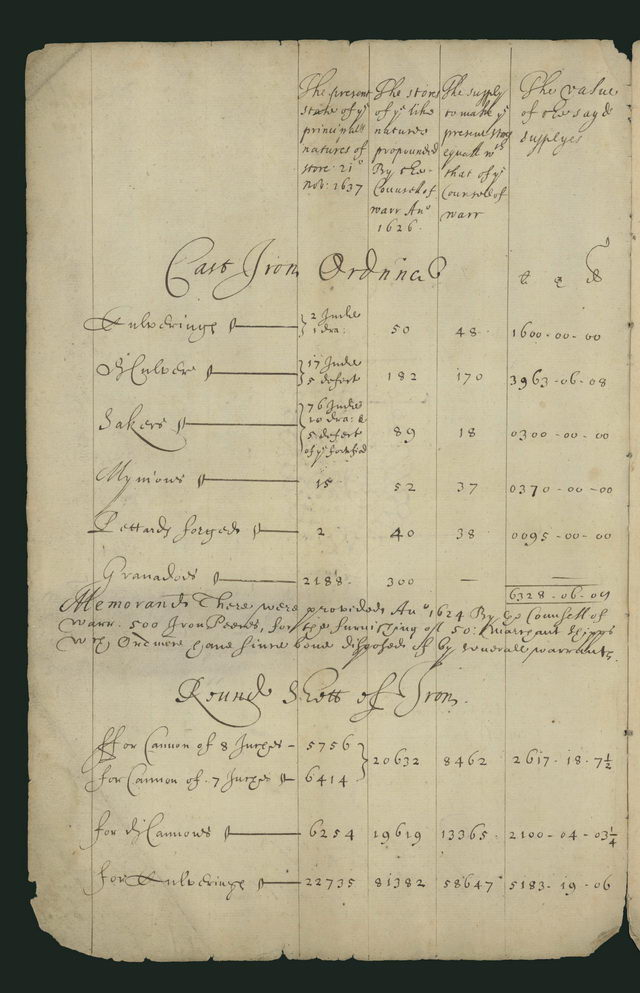 The present state of yᵉ principall natures of store 21º Nov: 1637
The store of yᵉ like nature propounded By the Counsel of warr Anº 1626.
The supply to make yᵉ present store equall wᵗʰ that of yᵉ Counsell of warr
The value of the sayd supplyes
Cast Iron Ordnnce
Culveringe 2 Indif 1 dra: 50 48 1600-00-00
dj Culver 17 Indif 5 defect 182 170 3963-06-08
Sakers 76 Indif 10 dra: & 5 defect of yᵉ 89 18 0300-00-00
Mynions 15 52 37 0370-00-00
Pettards forged 2 40 38 0095-00-00
Granadoes 2188 300 —
6328-06-
Memorand There were provided Anº 1624 By yᵉ Counsell of
warr. 500 Iron Peeces, for the furnishing of 50: Marchant shipps
wch Ordnnce have since bene disposed of by severall warrants.
Round Shott of Iron.
ffor Cannon of 8 Inches - 5756 20632 8462 2617-18-7½
for Cannon of 7 Inches 6414
for dj Cannons 6254 19619 13365 2100-04-03¼
for Culveringe 22735 81382 58647 5183-19-06